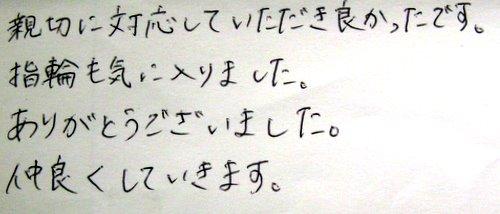 親切に対応していただき良かったです。
指輪も気に入りました。
ありがとうございました。
仲良くしていきます。